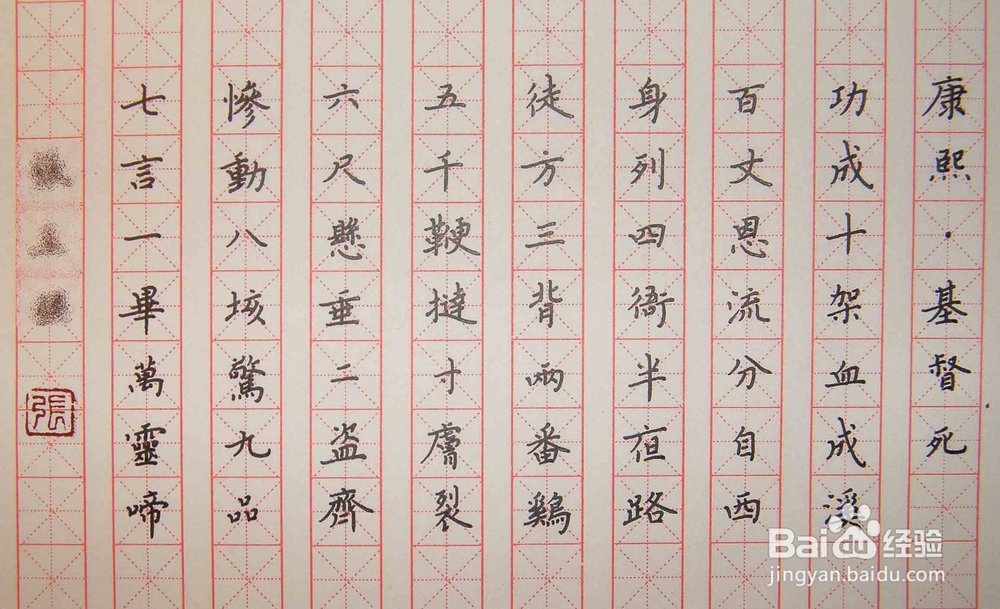 康熙·基督死
功成十架血成溪
百丈恩流分自西
身列四衙半亱路
徒方三背兩番鷄
五千鞭撻寸膚裂
六尺懸垂二盜齊
慘動八垓驚九品
七言一畢萬靈啼
張
Baidu 经验
jingyan.baidu.com